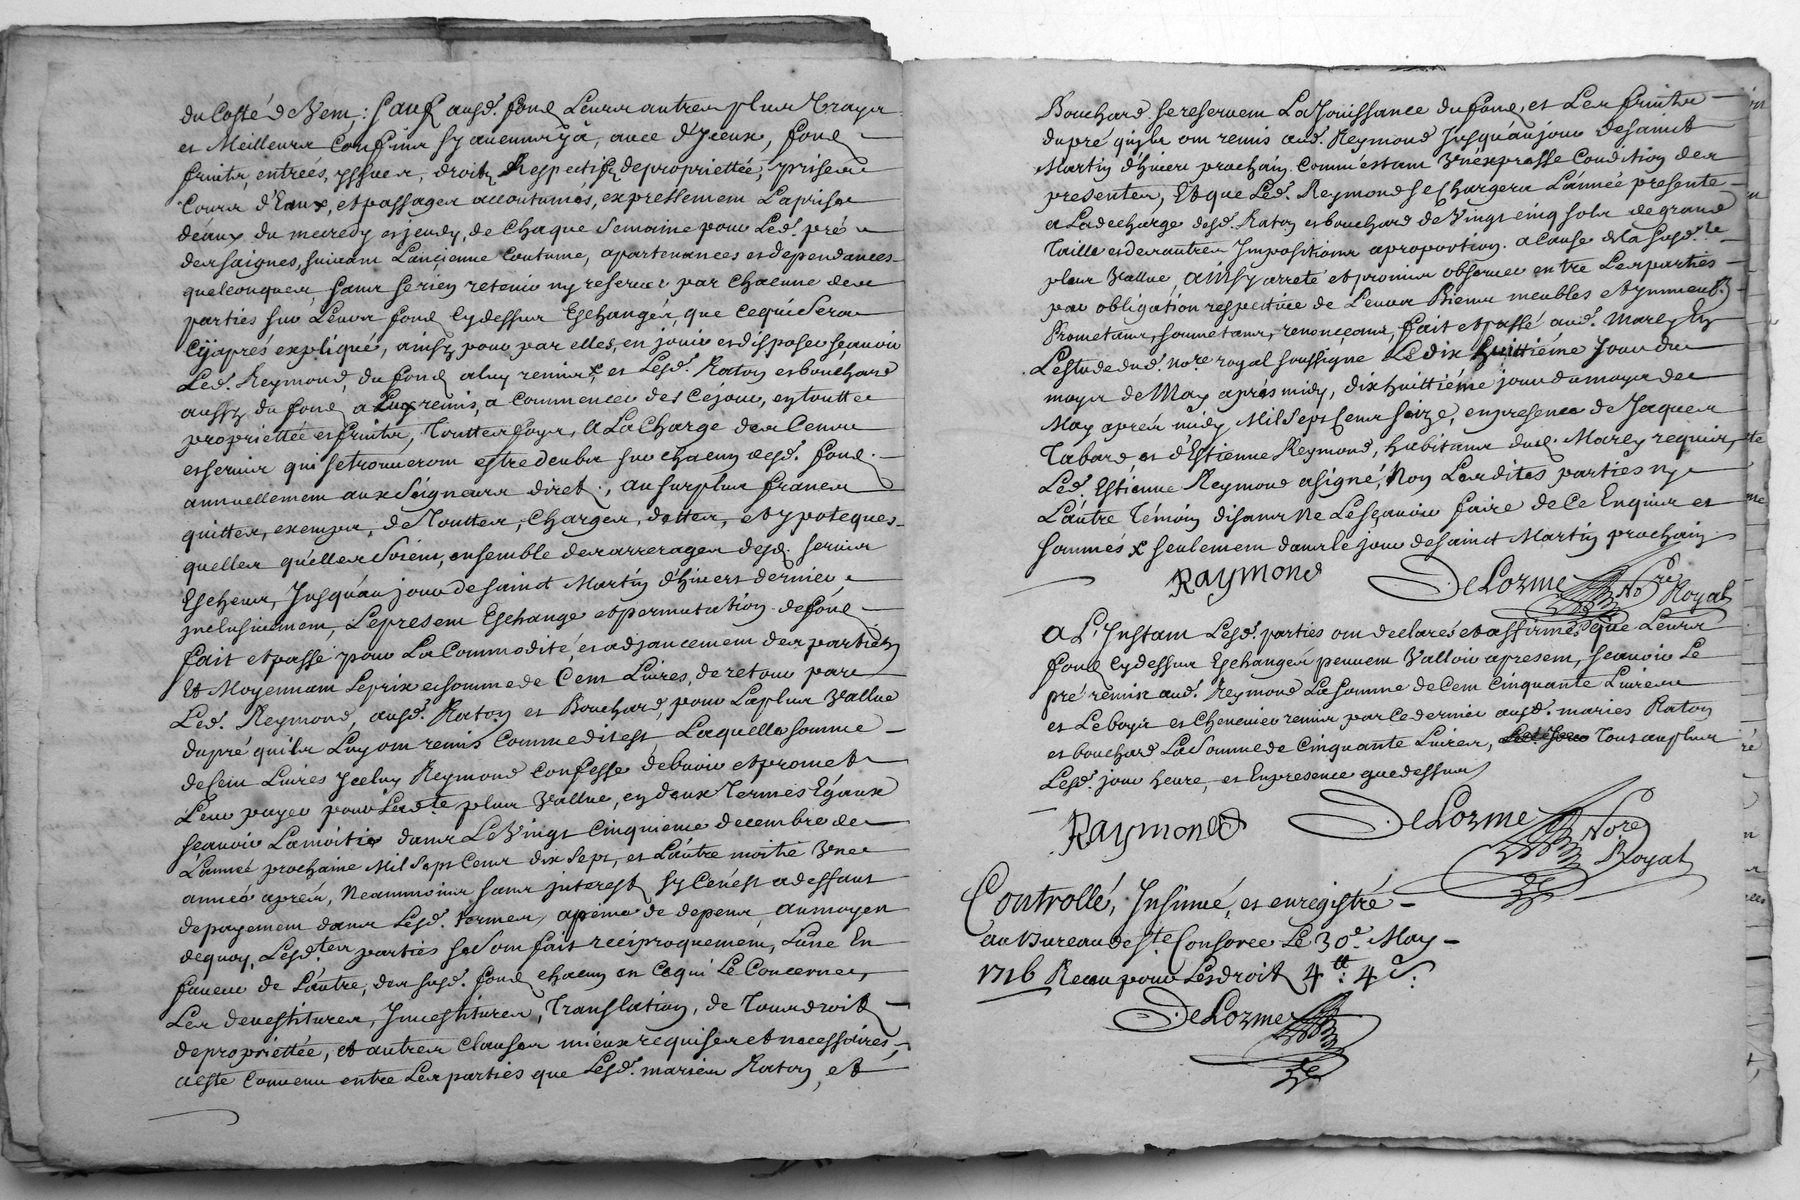 du Costé de Vem: Sauf ausd. fond Leurs autres plus Vrays
et Meilleurs Confins sy aucuns y à, avec d'Iceux, fond
fruits, entrées, yssues, droits Respectifs de proprietée, prises
Cours d'Eaux, et passages accoutumés, expressement La prise
déaux du mecredy et jeudy, de Chaque Semaine pour Led. pré
des saignes, suivant L'ancienne Coutume, apartenances et dependances
quelconques, sans se rien retenir ny reserver par Chacune des
parties sur Leurs fond Cydessus Eschangés, que Cequi Sera
Cÿaprés expliqué, ainsy pour par elles, en jouir et disposer sçavoir
Led. Reymond, du fond a luy remis, et Lesd. Raton et bouchard
aussy du fond a Luy remis, a commencer dés Céjour, en toutte
proprietée et fruits, Touttes foys, A La Charge des Cens
et servis qui se trouveront estre deubs sur chacun desd. fond
annuellement aux Seigneurs direct., au surplus francs
quittes, exemps, de Touttes, Charges, dettes, et ypoteques
quelles quélles Soient, ensemble des arrerages desd. servis
Escheus, Jusqu'au jour de saint Martin d'hivert dernier
inclusivement, Le present Eschange et permutation de fond
fait et passé pour La Commodité, et adjancement des parties
Et Moyennant Le prix et somme de Cent Livres, de retour par
Led. Reymond, ausd. Raton et Bouchard, pour La plus Vallue
du pré qu'ils Luy ont remis Comme dit est Laquelle somme
de Cent Livres yceluy Reymond Confesse debvoir et promet
Leur payer pour Ladte plus Vallue, en deux Termes Egaux
sçavoir La moitié dans Le Vingt Cinquieme decembre de
L'année prochaine Mil Sept Cens dix Sept, et L'autre moitié Vne
année aprés, Neanmoins sans interest sy Cen'est a deffaut
de payement dans Lesd. termes, apéine de depens, au moyen
de quoy, Lesd.tes parties se Sont fait reciproquement, L'une En
faveur de L'autre, des susd. fond chacun en Cequi Le Concerne,
Les devestitures, Jnvestitures, Translation, de Tous droits
de proprietée, et autres Clauses mieux requises et necessaires,
a esté Convenu entre Les parties que Lesd. mariés Raton, et
Bouchard se reservent La Jouissance du fond, et Les fruits
du pré qu'ils ont remis aud. Reymond Jusqu'au jour de saint
Martin d'hivert prochain Comme estant Vne expresse Condition des
presentes, Et que Led. Reymond se Chargera L'année presente
a La decharge desd. Raton et bouchard de Vingt cinq sols de grand
Taille et des autres Jmpositions a proportion a Cause de La susd.te
plus Vallue, ainsy arreté et promis observer entre Les parties
par obligation respective de Leurs Biens meubles et ymmeubl.
Prometans, soumetans, renonçeans, fait et passé aud. Marcy En
L'estude dud. nore. royal soussigné Le dix huittiéme Jour du
moys de May aprés midy, dix huittiéme jour du moys de
May aprés midy, Mil Sept Cens Seize, en presence de Jaques
Tabard et d'Estienne Reymond, habitans dud. Marcy requis,
Led. Estienne Reymond a signé, Non Lesdites parties ny
L'autre Témoin disans Ne Le Sçavoir faire de Ce Enquis et
sommés x seulement dans le jour de saint Martin prochain
Raymond DeLorme Nore Royal
A L'Instant Lesd. parties ont declarés et affirmés que Leurs
fond Cydessus Eschangés peuvent Valloir apresent, sçavoir Le
pré remis aud. Reymond La Somme de Cent Cinquante Livres
et Le boys et Chenevier remis par Ce dernier ausd. mariés Raton
et bouchard La Somme de Cinquante Livres, Tous au plus
Lesd. jour heure, et En presence que dessus
Raymond DeLorme Nore Royal
Controllé, Insinué, et enregistré
au Bureau de Ste Consorce Le 30e May
1716 Receu pour Les droit 4 tt: 4 s:
DeLorme